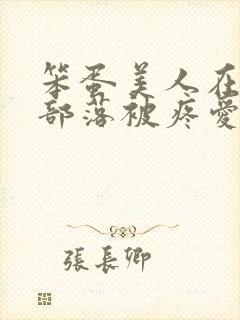 笨蛋美人在
部落被疼愛
張長卿